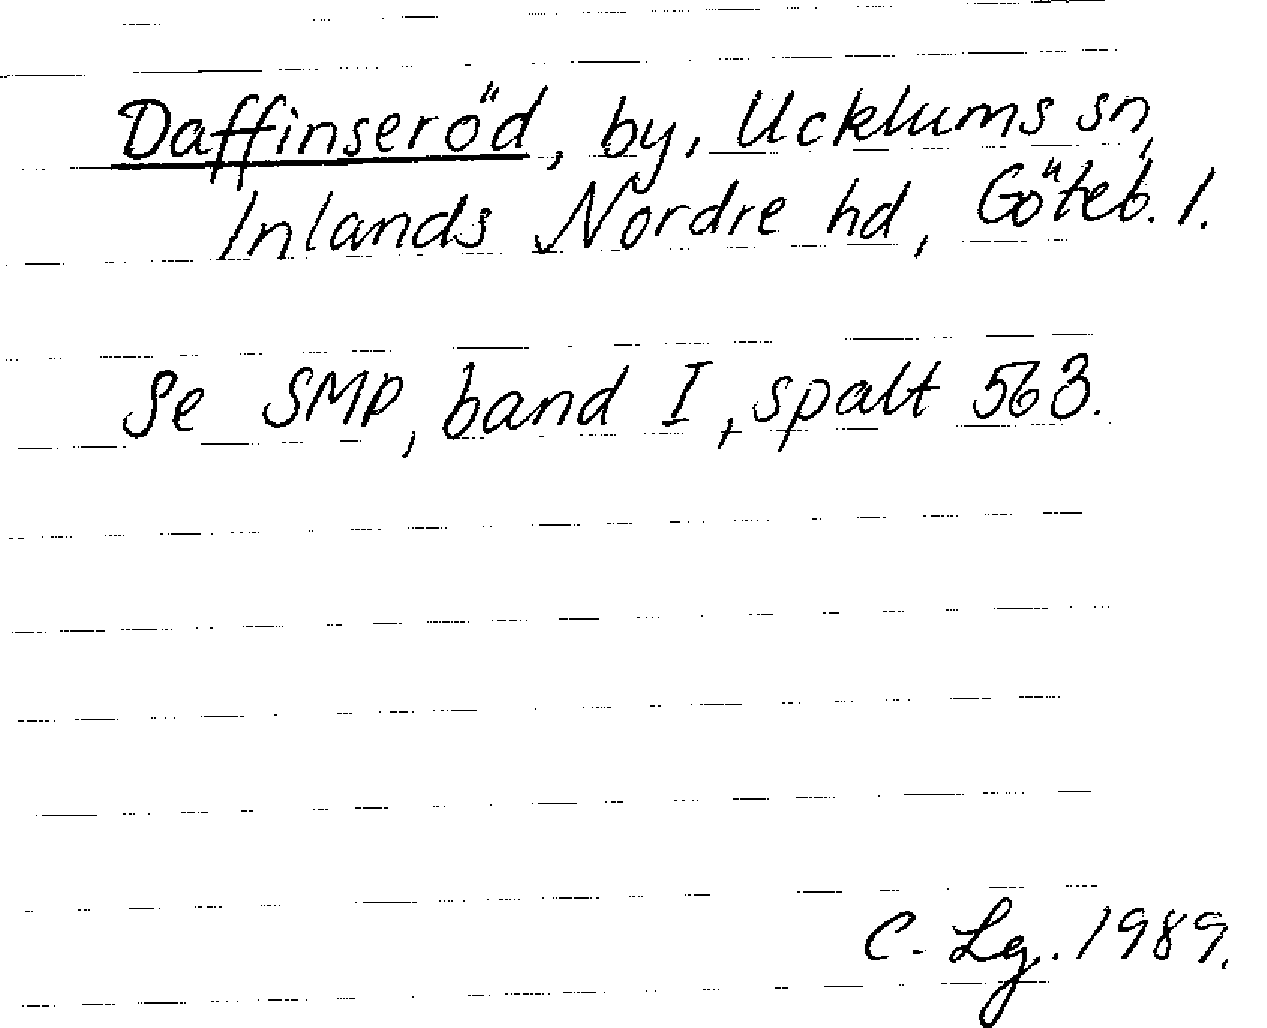 Daffinseröd, by, Ucklums sn,
Inlands Nordre hd, Göteb. l.
Se SMP, band I, spalt 563.
C. Lg. 1989.